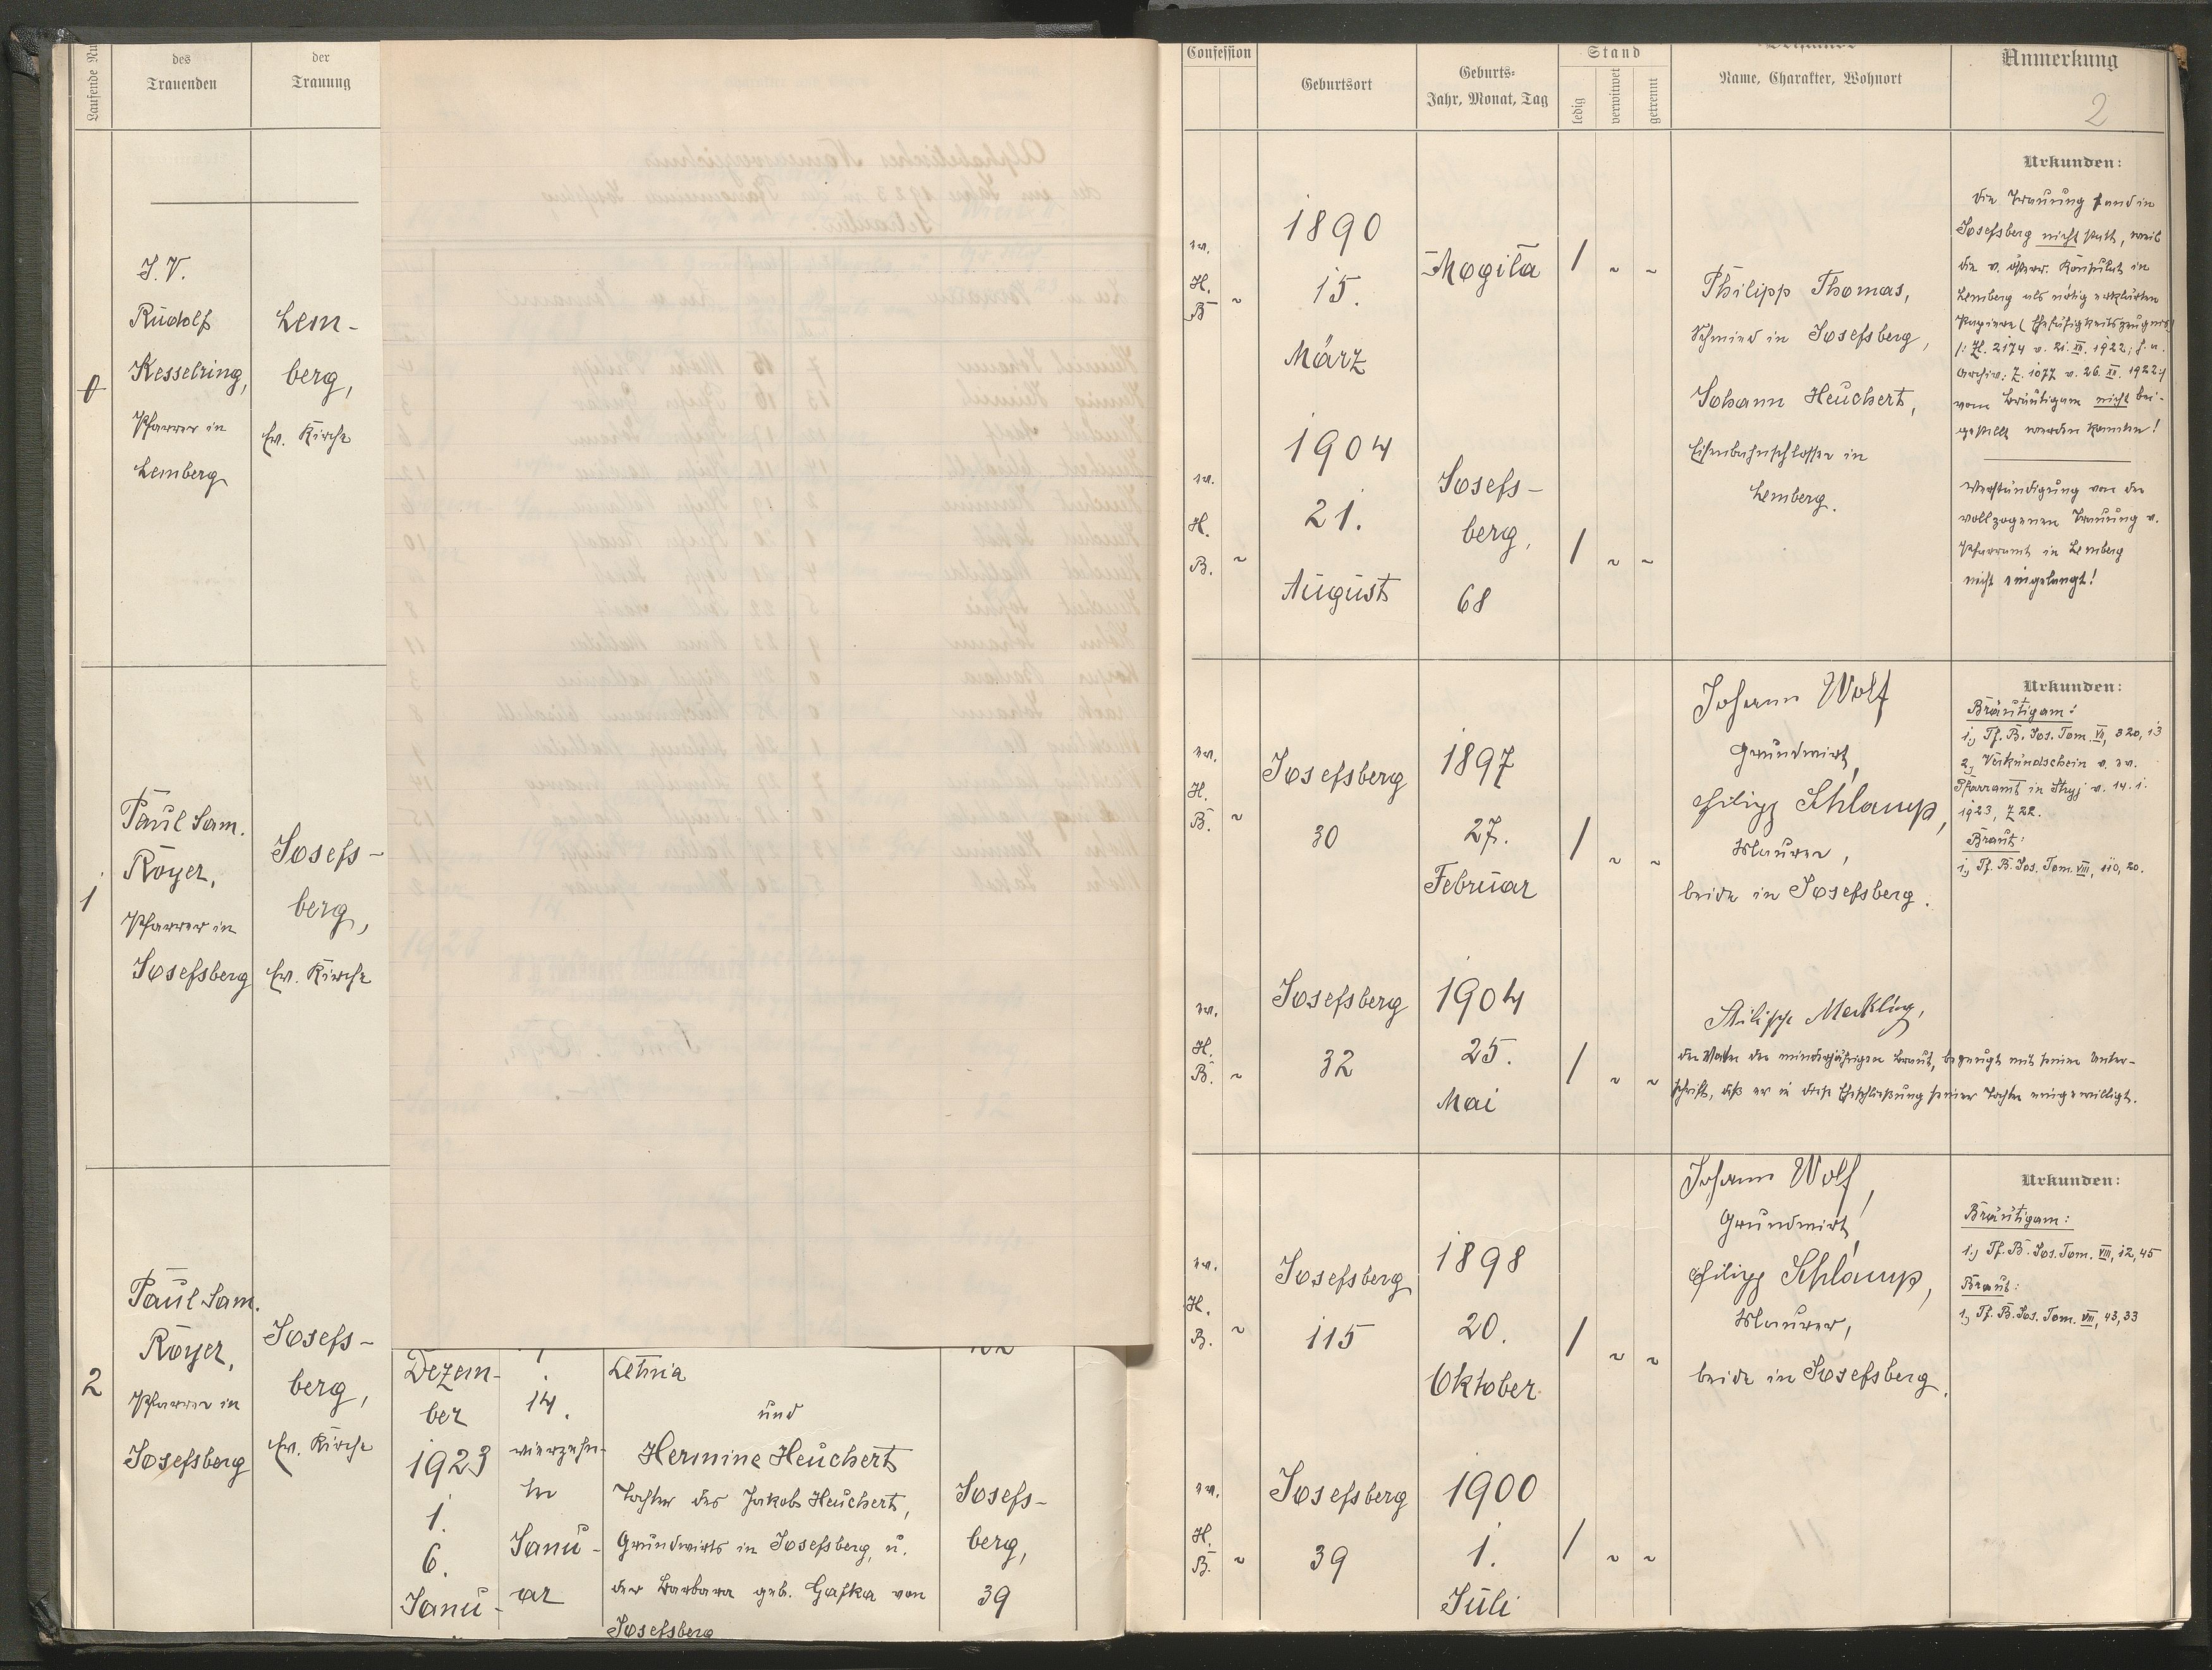 Laufende Nu
des
Trauenden
der
Trauung
0
J. V.
Rudolf
Kesselring,
Pfarrer in
Lemberg
Lem-
berg,
Ev. Kirche
1
Paul Sam.
Royer,
Pfarrer in
Josefsberg
Josefs-
berg,
Ev. Kirche
2
Paul Sam.
Royer,
Pfarrer in
Josefsberg
Josefs-
berg,
Ev. Kirche
Dezem-
ber
1923
1.
6.
Janu-
14.
vierzehn-
ter
Janu-
ar
Letnia
und
Hermine Heuchert
Tochter des Jakob Heuchert,
Grundwirts in Josefsberg, u.
der Barbara geb. Gafka von
Josefsberg
Josefs-
berg,
39
Confession
Geburtsort
Geburts-
Jahr, Monat, Tag
Stand
ledig
verwitwet
getrennt
Name, Charakter, Wohnort
Anmerkung
2
ev.
H.
B. ~
1890
15.
März
Mogila
/ ~ ~
Philipp Thomas,
Schmied in Josefsberg,
Johann Heuchert,
Eisenbahnschlosser in
Lemberg.
ev.
H.
B. ~
1904
21.
August
Josefs-
berg,
68
/ ~ ~
Urkunden:
Die Trauung fand in
Josefsberg nicht statt, weil
die v. österr. Konsulat in
Lemberg als nötig erklärten
Papiere (Ehefähigkeitszeugnis)
/: Zl. 2174 v. 21. XII. 1922; s. u.
Archiv: Z. 1077 v. 26. XII. 1922:/
vom Bräutigam nicht bei-
gestellt werden konnten!
Verständigung von der
vollzogenen Trauung v.
Pfarramt in Lemberg
nicht eingelangt!
ev.
H.
B. ~
Josefsberg
30
1897
27.
Februar
/ ~ ~
Johann Wolf
Grundwirt,
Philipp Schlamp,
Maurer,
beide in Josefsberg.
Urkunden:
Bräutigam:
1., Tf. B. Jos. Tom. VII, 320, 13
2., Verkündschein v. ev.
Pfarramt in Stryj v. 14. 1.
1923, Z 22.
Braut:
1., Tf. B. Jos. Tom. VIII, 110, 20.
ev.
H.
B. ~
Josefsberg
32
1904
25.
Mai
/ ~ ~
Philipp Mecklig,
der Vater der minderjährigen Braut, bezeugt mit seiner Unter-
schrift, daß er in diese Eheschließung seiner Tochter eingewilligt.
ev.
H.
B. ~
Josefsberg
115
1898
20.
Oktober
/ ~ ~
Johann Wolf,
Grundwirt,
Philipp Schlamp,
Maurer,
beide in Josefsberg.
Urkunden:
Bräutigam:
1., Tf. B. Jos. Tom. VIII, 12, 45
Braut:
1., Tf. B. Jos. Tom. VIII, 43, 33
ev.
H.
B. ~
Josefsberg
39
1900
1.
Juli
/ ~ ~